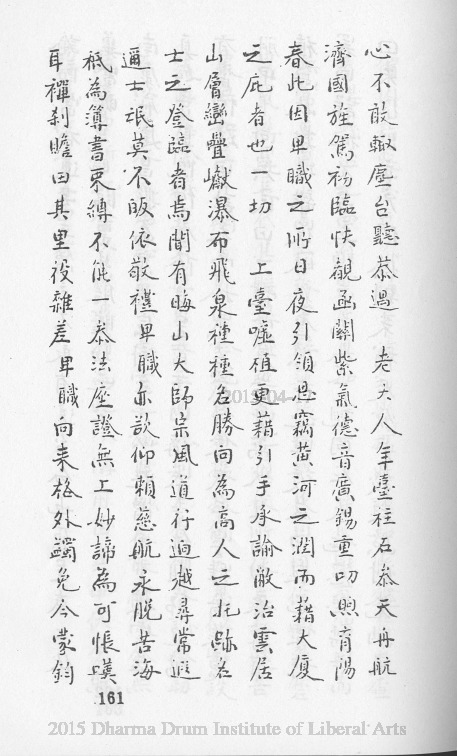 心不敢輙塵台聽恭遇　老大人年臺柱石叅天舟航
濟國旌駕初臨快覩函關紫氣德音廣錫重叨煦育陽
春此因卑職之所日夜引領思竊黃河之潤而藉大厦
之庇者也一切　上臺噓植更藉引手承諭敝治雲居
山層巒疊巘瀑布飛泉種種名勝向為高人之托跡名
士之登臨者焉間有晦山大師宗風道行逈越尋常遐
邇士氓莫不皈依敬禮卑職亦欲仰賴慈航永脫苦海
祗為簿書束縛不能一叅法座證無上妙諦為可悵嘆
耳禪刹瞻田其里役雜差卑職向来格外蠲免今蒙鈞
161
2015 Dharma Drum Institute of Liberal Arts